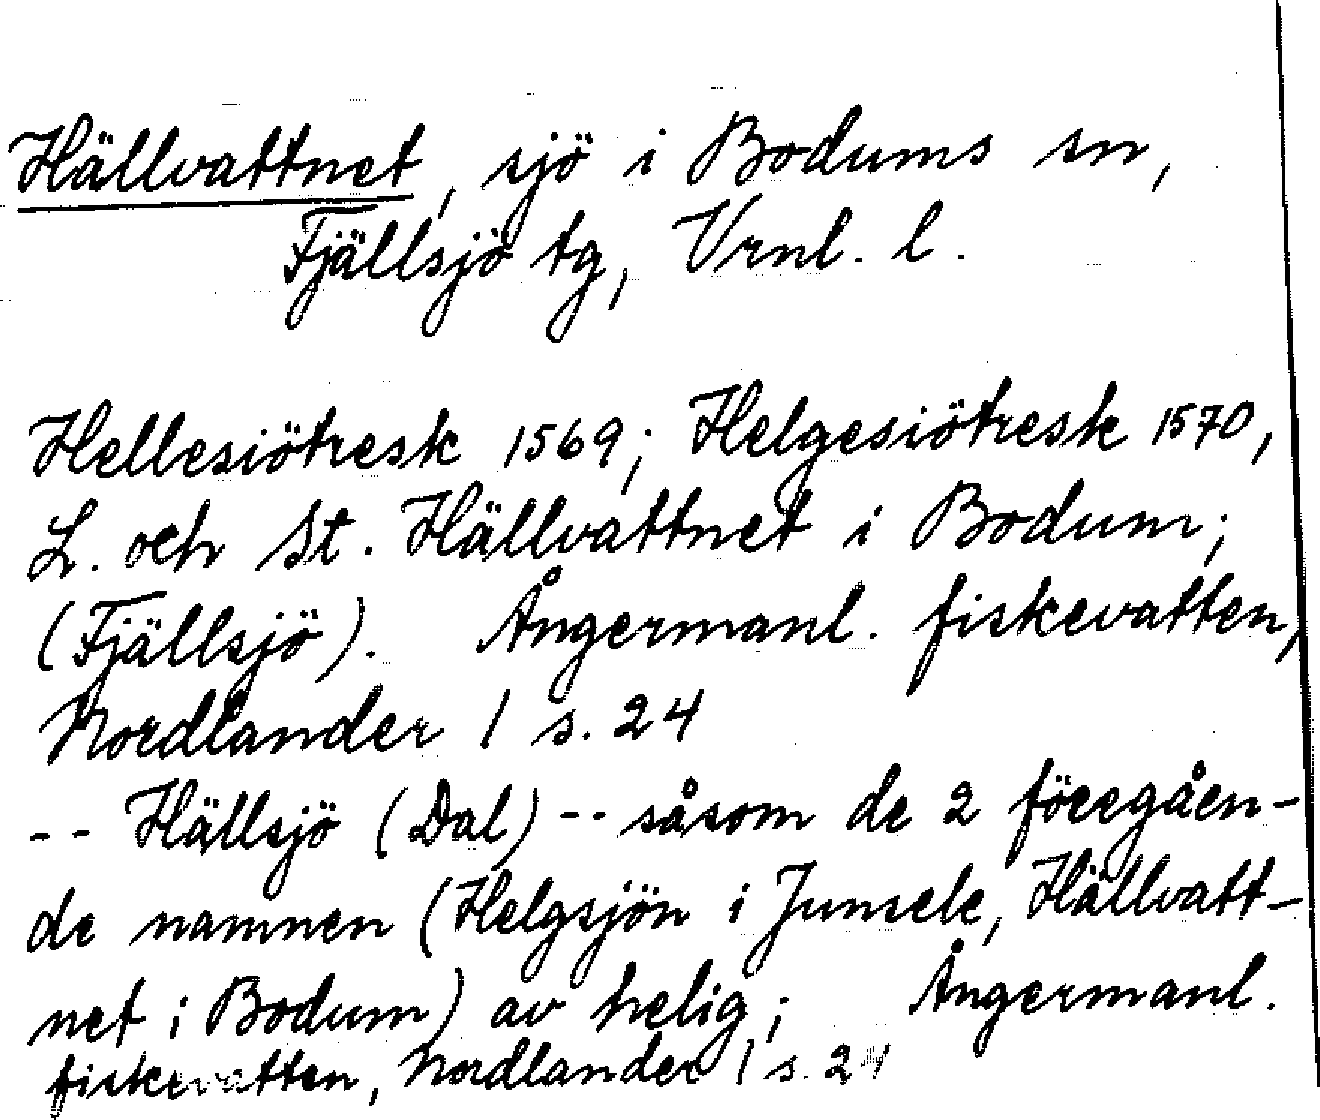 Hällvattnet, sjö i Bodums sn,
Fjällsjö tg, Vrnl. l.
Hellesiötresk 1569; Helgesiötresk 1570,
L. och St. Hällvattnet i Bodum;
(Fjällsjö). Ångermanl. fiskevatten,
Nordlander 1 s. 24
-- Hällsjö (Dal) -- såsom de 2 föregåen-
de namnen (Helgsjön i Junsele, Hällvatt-
net i Bodum) av helig; Ångermanl.
fiskevatten, Nordlander 1 s. 24